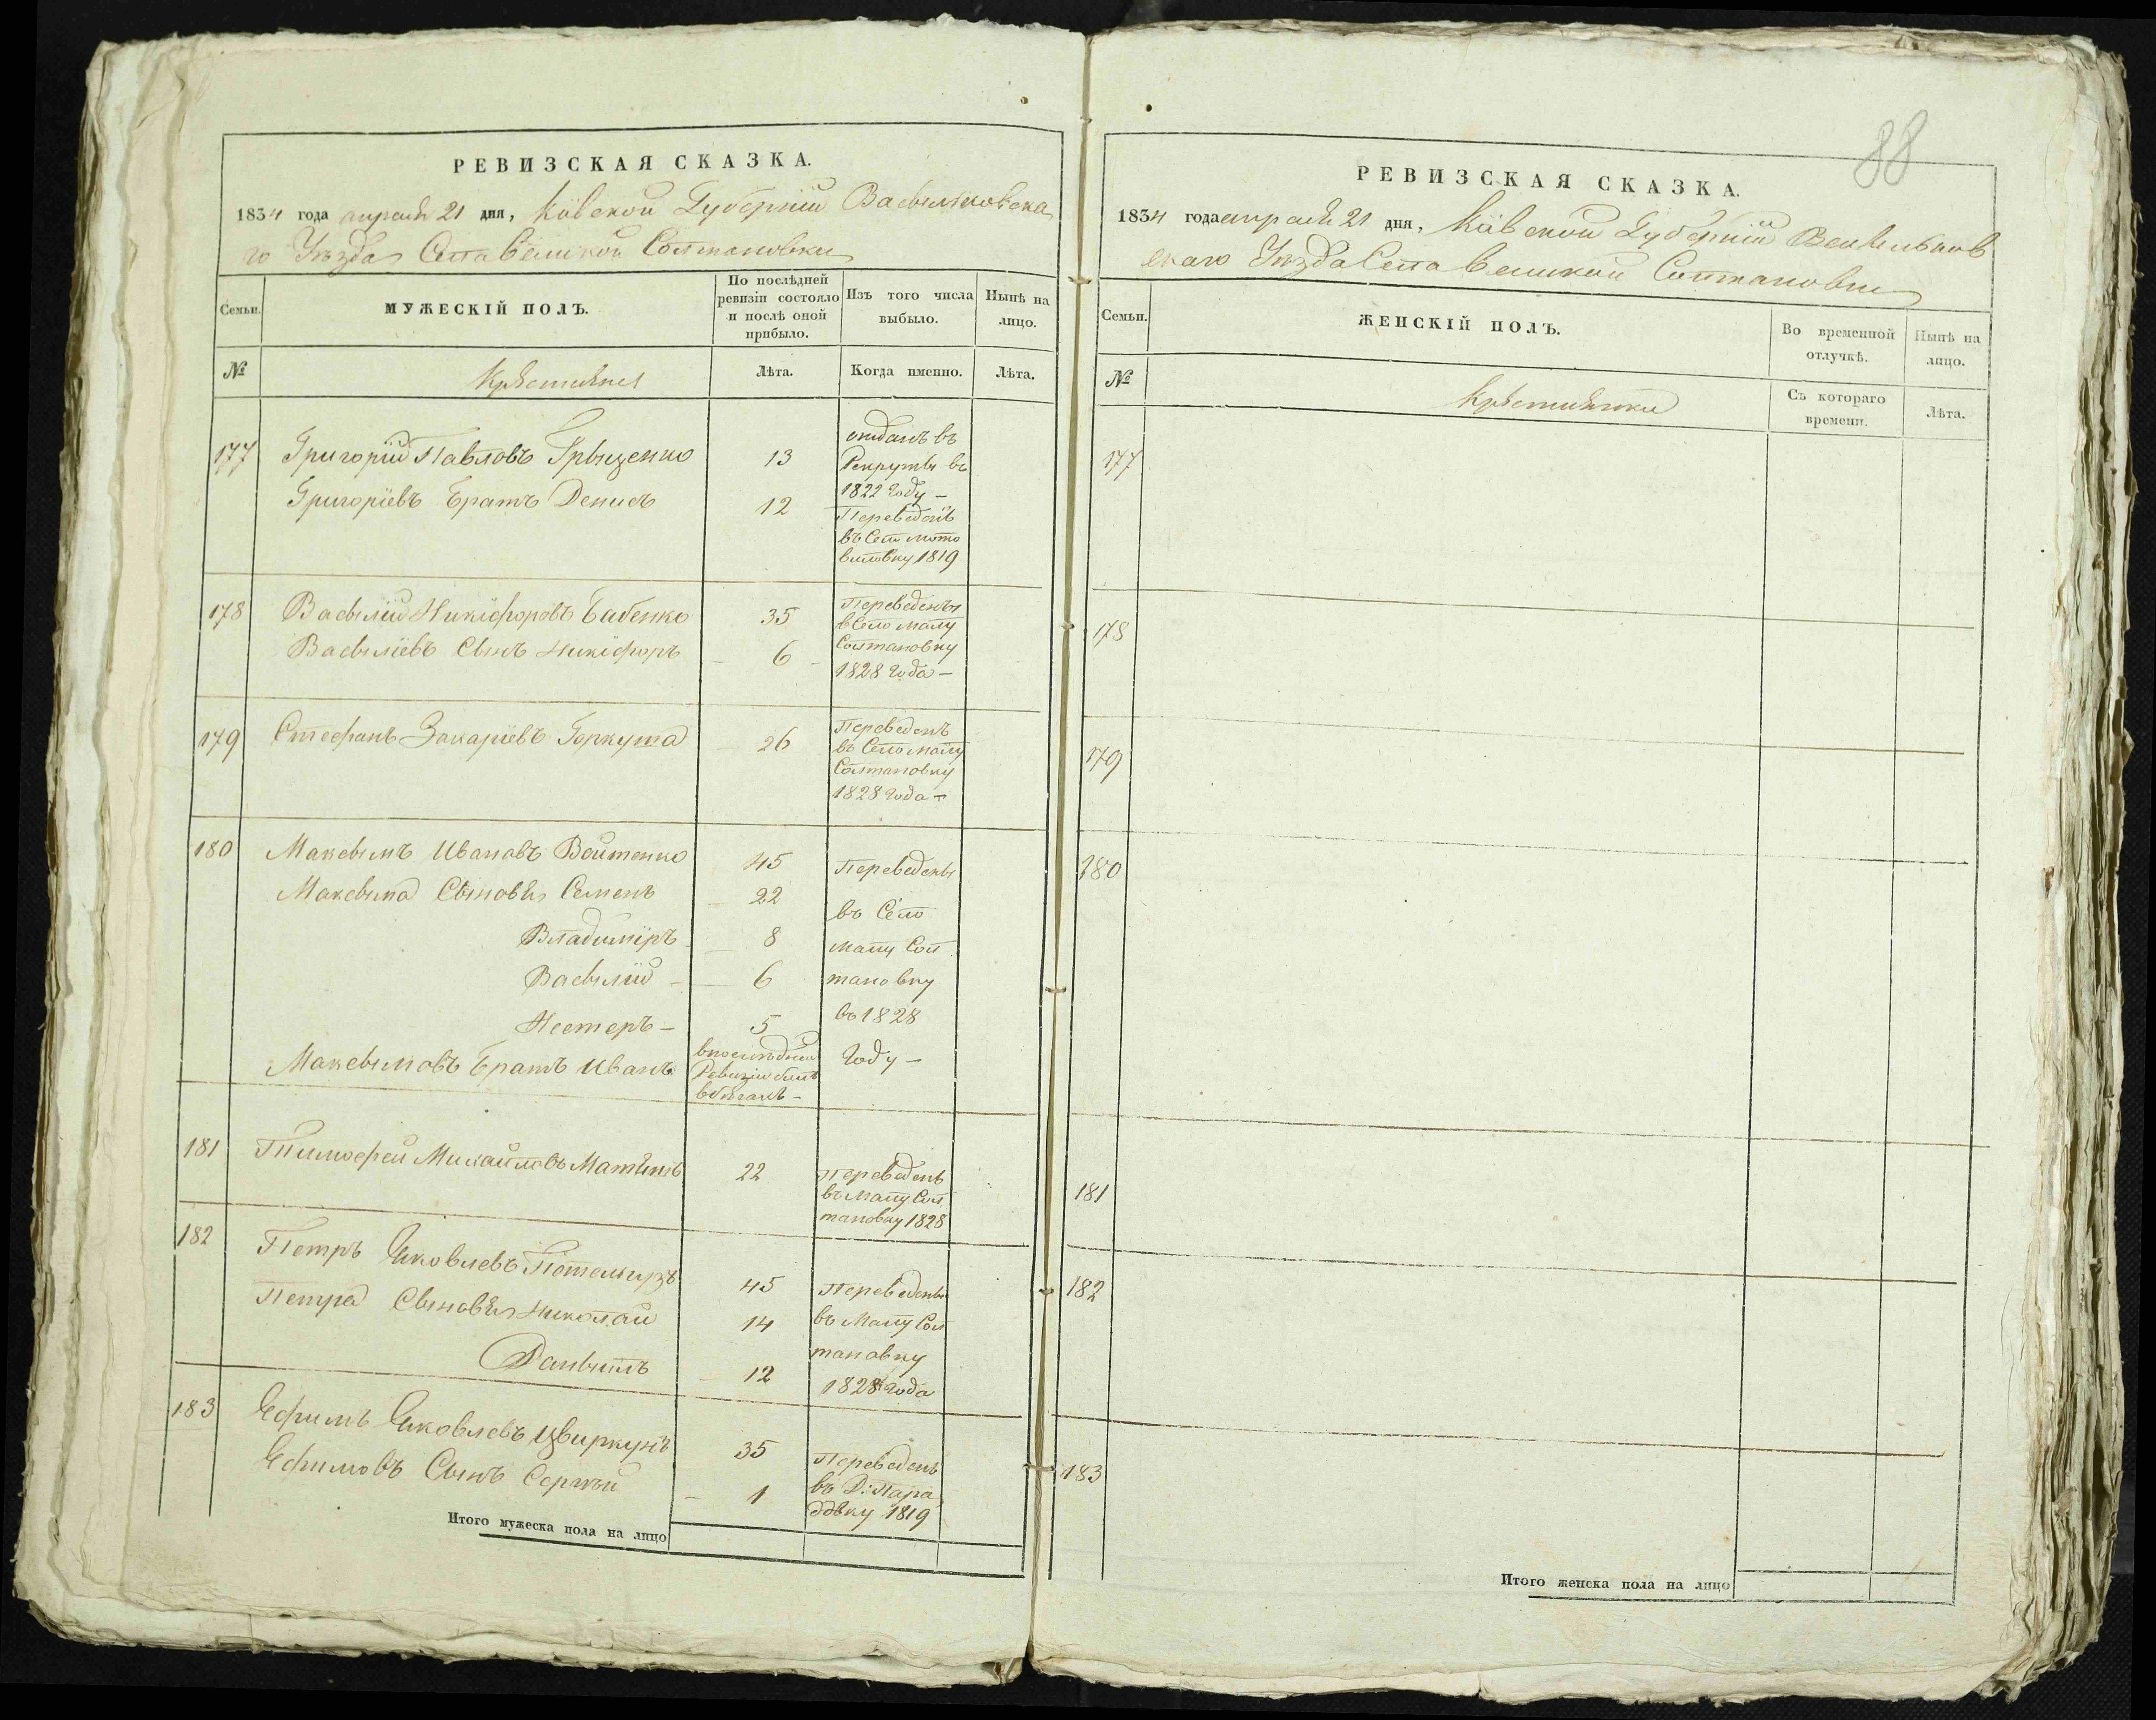 РЕВИЗСКАЯ СКАЗКА.
1834 года апреля 21 дня, Кіевской Губерніи Васыльковска
го Уезда Села Великой Солтановки
Семьи.
МУЖЕСКІЙ ПОЛЪ.
По послѣдней ревизіи состояло и послѣ оной прибыло.
Изъ того числа выбыло.
Нынѣ на лицо.
№
Крестьяне
Лѣта.
Когда именно.
Лѣта.
177 Григорій Павловъ Грыценко 13
отданъ въ
Рекруты въ
1822 Году —
Григоріевъ Братъ Денисъ 12
Переведенъ
въ Село Мото
виловку 1819
178 Васылій Никифоровъ Бабенко 35
Васыліевъ Сынъ Никифоръ 6
Переведены
в Село Малу
Солтановку
1828 Года —
179 Стефанъ Захаріевъ Горкуша 26
Переведенъ
въ Село Малу
Солтановку
1828 Года —
180 Максымъ Ивановъ Войтенко 45
Максыма Сыновья Семенъ 22
Владиміръ 8
Васылій — 6
Нестеръ — 5
Переведены
въ Село
Малу Сол
тановку
въ 1828
Году —
Максымовъ Братъ Иванъ
в последней
Ревизіи былъ
в бегахъ —
181 Тимофей Михайловъ 22
Переведенъ
въ Малу Сол
тановку 1828
182 Петръ Яковлевъ 45
Петра Сыновья Николай 14
Данылъ 12
Переведены
въ Малу Сол
тановку
1828 Года
183 Ефимъ Яковлевъ Цвиркунъ 35
Ефимовъ Сынъ Сергей 1
Переведенъ
въ Д:
1819
Итого мужеска пола на лицо
88
РЕВИЗСКАЯ СКАЗКА.
1834 года апреля 21 дня, Кіевской Губерніи Васыльков
скаго Уезда Села Великой Солтановки
Семьи.
ЖЕНСКІЙ ПОЛЪ.
Во временной отлучкѣ.
Нынѣ на лицо.
№
Крестьянки
Съ котораго времени.
Лѣта.
177
178
179
180
181
182
183
Итого женска пола на лицо